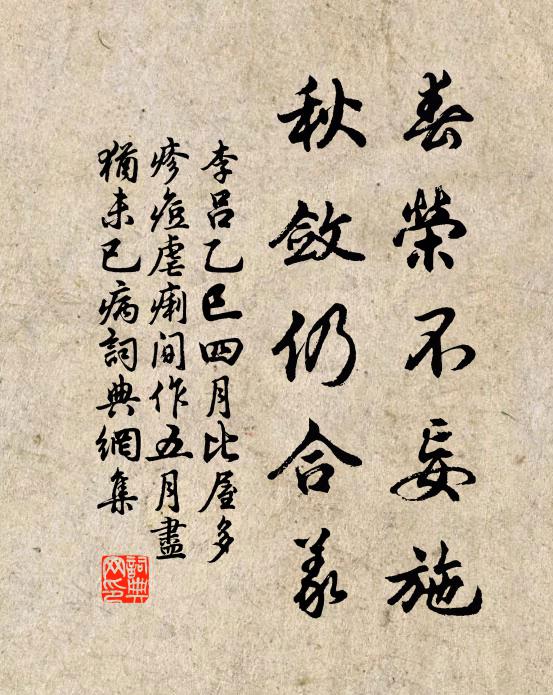 春榮不妄施
秋斂仍合義
李呂乙巳四月比屋多
疹痘虐痢间作五月盡
猶未已病詞典網集
詞典
网印